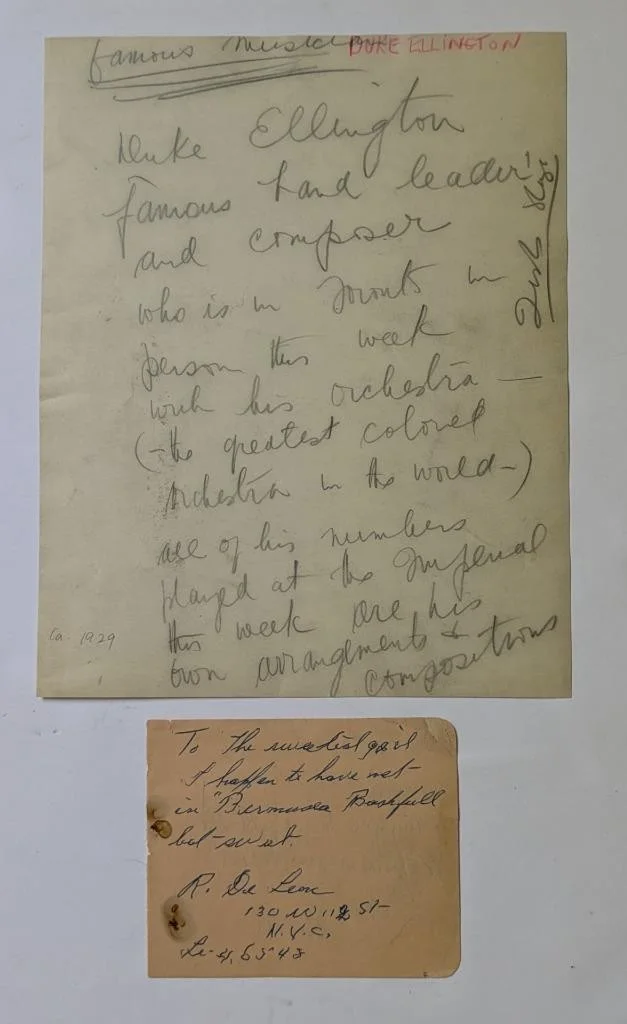 famous
DUKE ELLINGTON
Duke Ellington
famous band leader
and composer
who is in Toronto in
person this week
with his orchestra —
(-the greatest colored
orchestra in the world-)
all of his numbers
played at the Imperial
this week are his
own arrangements &
compositions
Ca. 1929
To the sweetest girl
I happen to have met
in "Bermuda Bashfull
but sweet.
R. De Leon
130 W 112 St
N.Y.C.
Le-4,6543